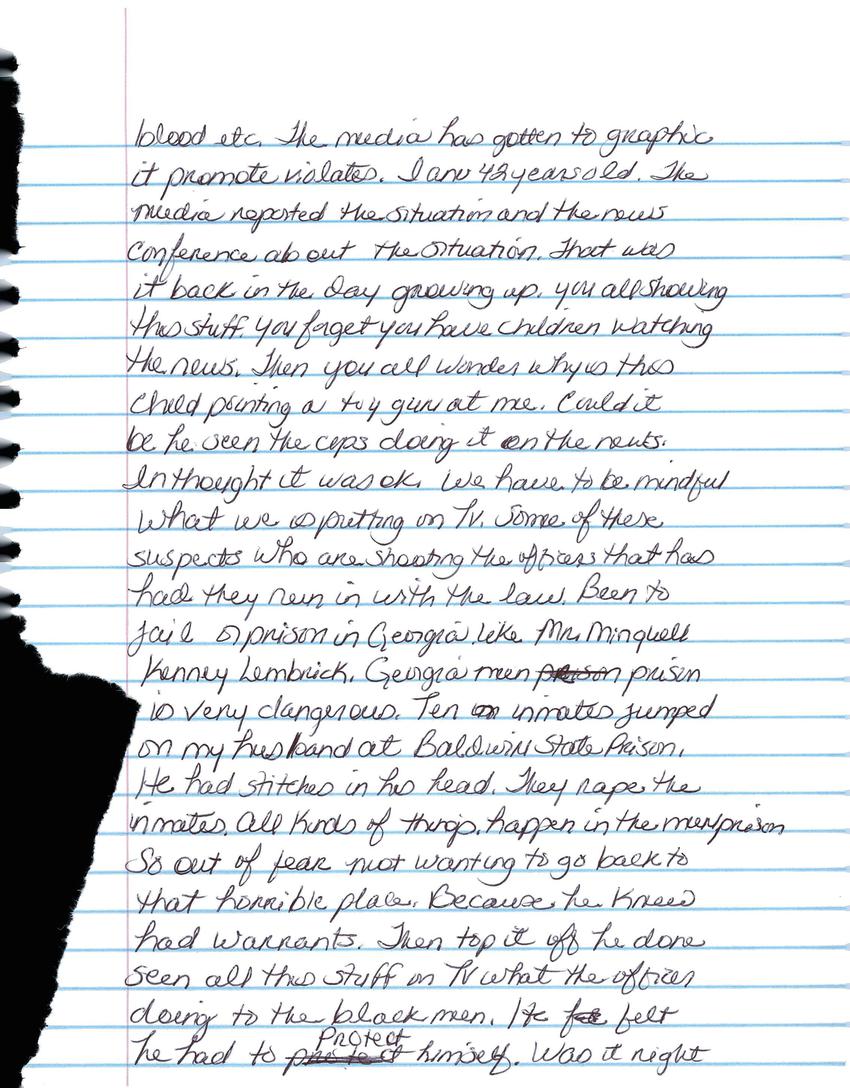 blood etc. The media has gotten to graphic
it promote violates. I am 42 years old. The
media reported the situation and the news
Conference about the situation. That was
it back in the day growing up. you all showing
this stuff. you forget you have children watching
the news. Then you all wonder why is this
child pointing a toy gun at me. Could it
be he seen the cops doing it on the news.
In thought it was ok. We have to be mindful
what we is putting on Tv. Some of these
suspects who are shooting the officers that has
had they run in with the law. Been to
jail or prison in Georgia like Mr. Minquell
Kenney Lembrick. Georgia men prison prison
is very dangerous. Ten inmates jumped
on my husband at Baldwin State Prison.
He had stitches in his head. They rape the
inmates. all kinds of things. happen in the men prison
So out of fear not wanting to go back to
that horrible place. Because he knew
had warrants. Then top it off he done
seen all this stuff on Tv what the officer
doing to the black men. He felt
he had to Protect himself. Was it right